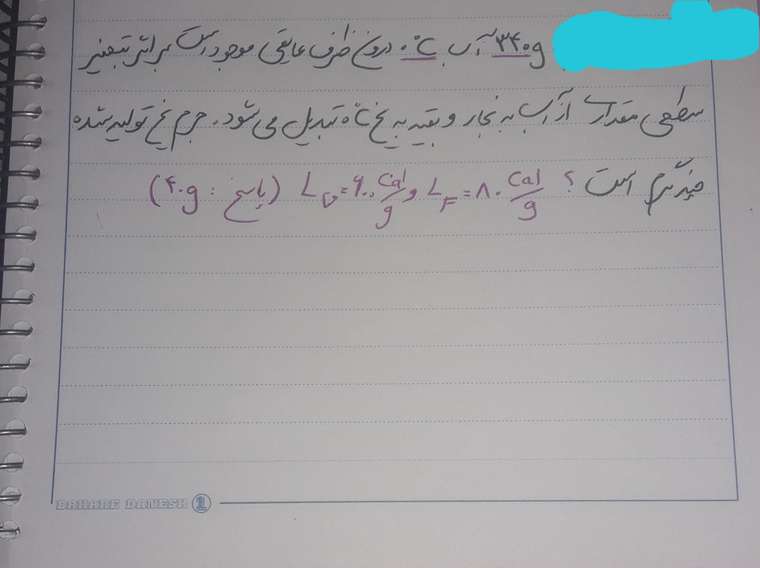 ۳۴۰g آب ۰°C درون ظرف عایقی موجود است بر اثر تبخیر
سطحی مقداری از آب به بخار و بقیه به یخ ۰°C تبدیل می‌شود. جرم یخ تولید شده
چند گرم است؟ L_F = ۸۰ Cal/g و L_V = ۶۰۰ Cal/g (پاسخ: ۴۰g)
BAHARE DANESH 1